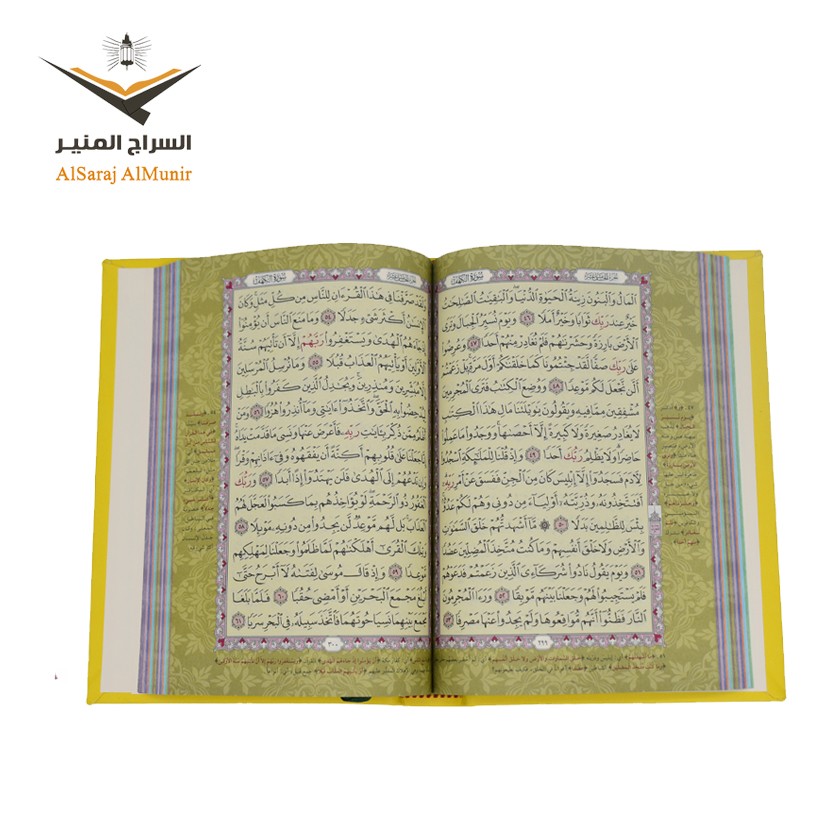 السراج المنير
AlSaraj AlMunir
سورة الكهف
الجزء الخامس عشر
ٱلْمَالُ وَٱلْبَنُونَ زِينَةُ ٱلْحَيَوٰةِ ٱلدُّنْيَا وَٱلْبَٰقِيَٰتُ ٱلصَّٰلِحَٰتُ
خَيْرٌ عِندَ رَبِّكَ ثَوَابًا وَخَيْرٌ أَمَلًا ٤٦ وَيَوْمَ نُسَيِّرُ ٱلْجِبَالَ وَتَرَى
ٱلْأَرْضَ بَارِزَةً وَحَشَرْنَٰهُمْ فَلَمْ نُغَادِرْ مِنْهُمْ أَحَدًا ٤٧ وَعُرِضُوا۟
عَلَىٰ رَبِّكَ صَفًّا لَّقَدْ جِئْتُمُونَا كَمَا خَلَقْنَٰكُمْ أَوَّلَ مَرَّةٍۭ بَلْ زَعَمْتُمْ
أَلَّن نَّجْعَلَ لَكُم مَّوْعِدًا ٤٨ وَوُضِعَ ٱلْكِتَٰبُ فَتَرَى ٱلْمُجْرِمِينَ
مُشْفِقِينَ مِمَّا فِيهِ وَيَقُولُونَ يَٰوَيْلَتَنَا مَالِ هَٰذَا ٱلْكِتَٰبِ
لَا يُغَادِرُ صَغِيرَةً وَلَا كَبِيرَةً إِلَّآ أَحْصَىٰهَا وَوَجَدُوا۟ مَا عَمِلُوا۟
حَاضِرًا وَلَا يَظْلِمُ رَبُّكَ أَحَدًا ٤٩ وَإِذْ قُلْنَا لِلْمَلَٰٓئِكَةِ ٱسْجُدُوا۟
لِـَٔادَمَ فَسَجَدُوٓا۟ إِلَّآ إِبْلِيسَ كَانَ مِنَ ٱلْجِنِّ فَفَسَقَ عَنْ أَمْرِ رَبِّهِۦٓ
أَفَتَتَّخِذُونَهُۥ وَذُرِّيَّتَهُۥٓ أَوْلِيَآءَ مِن دُونِى وَهُمْ لَكُمْ عَدُوٌّۢ
بِئْسَ لِلظَّٰلِمِينَ بَدَلًا ٥٠ ۞ مَّآ أَشْهَدتُّهُمْ خَلْقَ ٱلسَّمَٰوَٰتِ
وَٱلْأَرْضِ وَلَا خَلْقَ أَنفُسِهِمْ وَمَا كُنتُ مُتَّخِذَ ٱلْمُضِلِّينَ عَضُدًا
٥١ وَيَوْمَ يَقُولُ نَادُوا۟ شُرَكَآءِىَ ٱلَّذِينَ زَعَمْتُمْ فَدَعَوْهُمْ
فَلَمْ يَسْتَجِيبُوا۟ لَهُمْ وَجَعَلْنَا بَيْنَهُم مَّوْبِقًا ٥٢ وَرَءَا ٱلْمُجْرِمُونَ
ٱلنَّارَ فَظَنُّوٓا۟ أَنَّهُم مُّوَاقِعُوهَا وَلَمْ يَجِدُوا۟ عَنْهَا مَصْرِفًا ٥٣
٢٩٩
سورة الكهف
الجزء الخامس عشر
وَلَقَدْ صَرَّفْنَا فِى هَٰذَا ٱلْقُرْءَانِ لِلنَّاسِ مِن كُلِّ مَثَلٍ وَكَانَ
ٱلْإِنسَٰنُ أَكْثَرَ شَىْءٍ جَدَلًا ٥٤ وَمَا مَنَعَ ٱلنَّاسَ أَن يُؤْمِنُوٓا۟
إِذْ جَآءَهُمُ ٱلْهُدَىٰ وَيَسْتَغْفِرُوا۟ رَبَّهُمْ إِلَّآ أَن تَأْتِيَهُمْ سُنَّةُ
ٱلْأَوَّلِينَ أَوْ يَأْتِيَهُمُ ٱلْعَذَابُ قُبُلًا ٥٥ وَمَا نُرْسِلُ ٱلْمُرْسَلِينَ
إِلَّا مُبَشِّرِينَ وَمُنذِرِينَ وَيُجَٰدِلُ ٱلَّذِينَ كَفَرُوا۟ بِٱلْبَٰطِلِ
لِيُدْحِضُوا۟ بِهِ ٱلْحَقَّ وَٱتَّخَذُوٓا۟ ءَايَٰتِى وَمَآ أُنذِرُوا۟ هُزُوًا ٥٦ وَمَنْ
أَظْلَمُ مِمَّن ذُكِّرَ بِـَٔايَٰتِ رَبِّهِۦ فَأَعْرَضَ عَنْهَا وَنَسِىَ مَا قَدَّمَتْ يَدَاهُ
إِنَّا جَعَلْنَا عَلَىٰ قُلُوبِهِمْ أَكِنَّةً أَن يَفْقَهُوهُ وَفِىٓ ءَاذَانِهِمْ وَقْرًا
وَإِن تَدْعُهُمْ إِلَى ٱلْهُدَىٰ فَلَن يَهْتَدُوٓا۟ إِذًا أَبَدًا ٥٧ وَرَبُّكَ
ٱلْغَفُورُ ذُو ٱلرَّحْمَةِ لَوْ يُؤَاخِذُهُم بِمَا كَسَبُوا۟ لَعَجَّلَ لَهُمُ
ٱلْعَذَابَ بَل لَّهُم مَّوْعِدٌ لَّن يَجِدُوا۟ مِن دُونِهِۦ مَوْئِلًا ٥٨
وَتِلْكَ ٱلْقُرَىٰٓ أَهْلَكْنَٰهُمْ لَمَّا ظَلَمُوا۟ وَجَعَلْنَا لِمَهْلِكِهِم
مَّوْعِدًا ٥٩ وَإِذْ قَالَ مُوسَىٰ لِفَتَىٰهُ لَآ أَبْرَحُ حَتَّىٰٓ
أَبْلُغَ مَجْمَعَ ٱلْبَحْرَيْنِ أَوْ أَمْضِىَ حُقُبًا ٦٠ فَلَمَّا بَلَغَا
مَجْمَعَ بَيْنِهِمَا نَسِيَا حُوتَهُمَا فَٱتَّخَذَ سَبِيلَهُۥ فِى ٱلْبَحْرِ سَرَبًا ٦١
٣٠٠